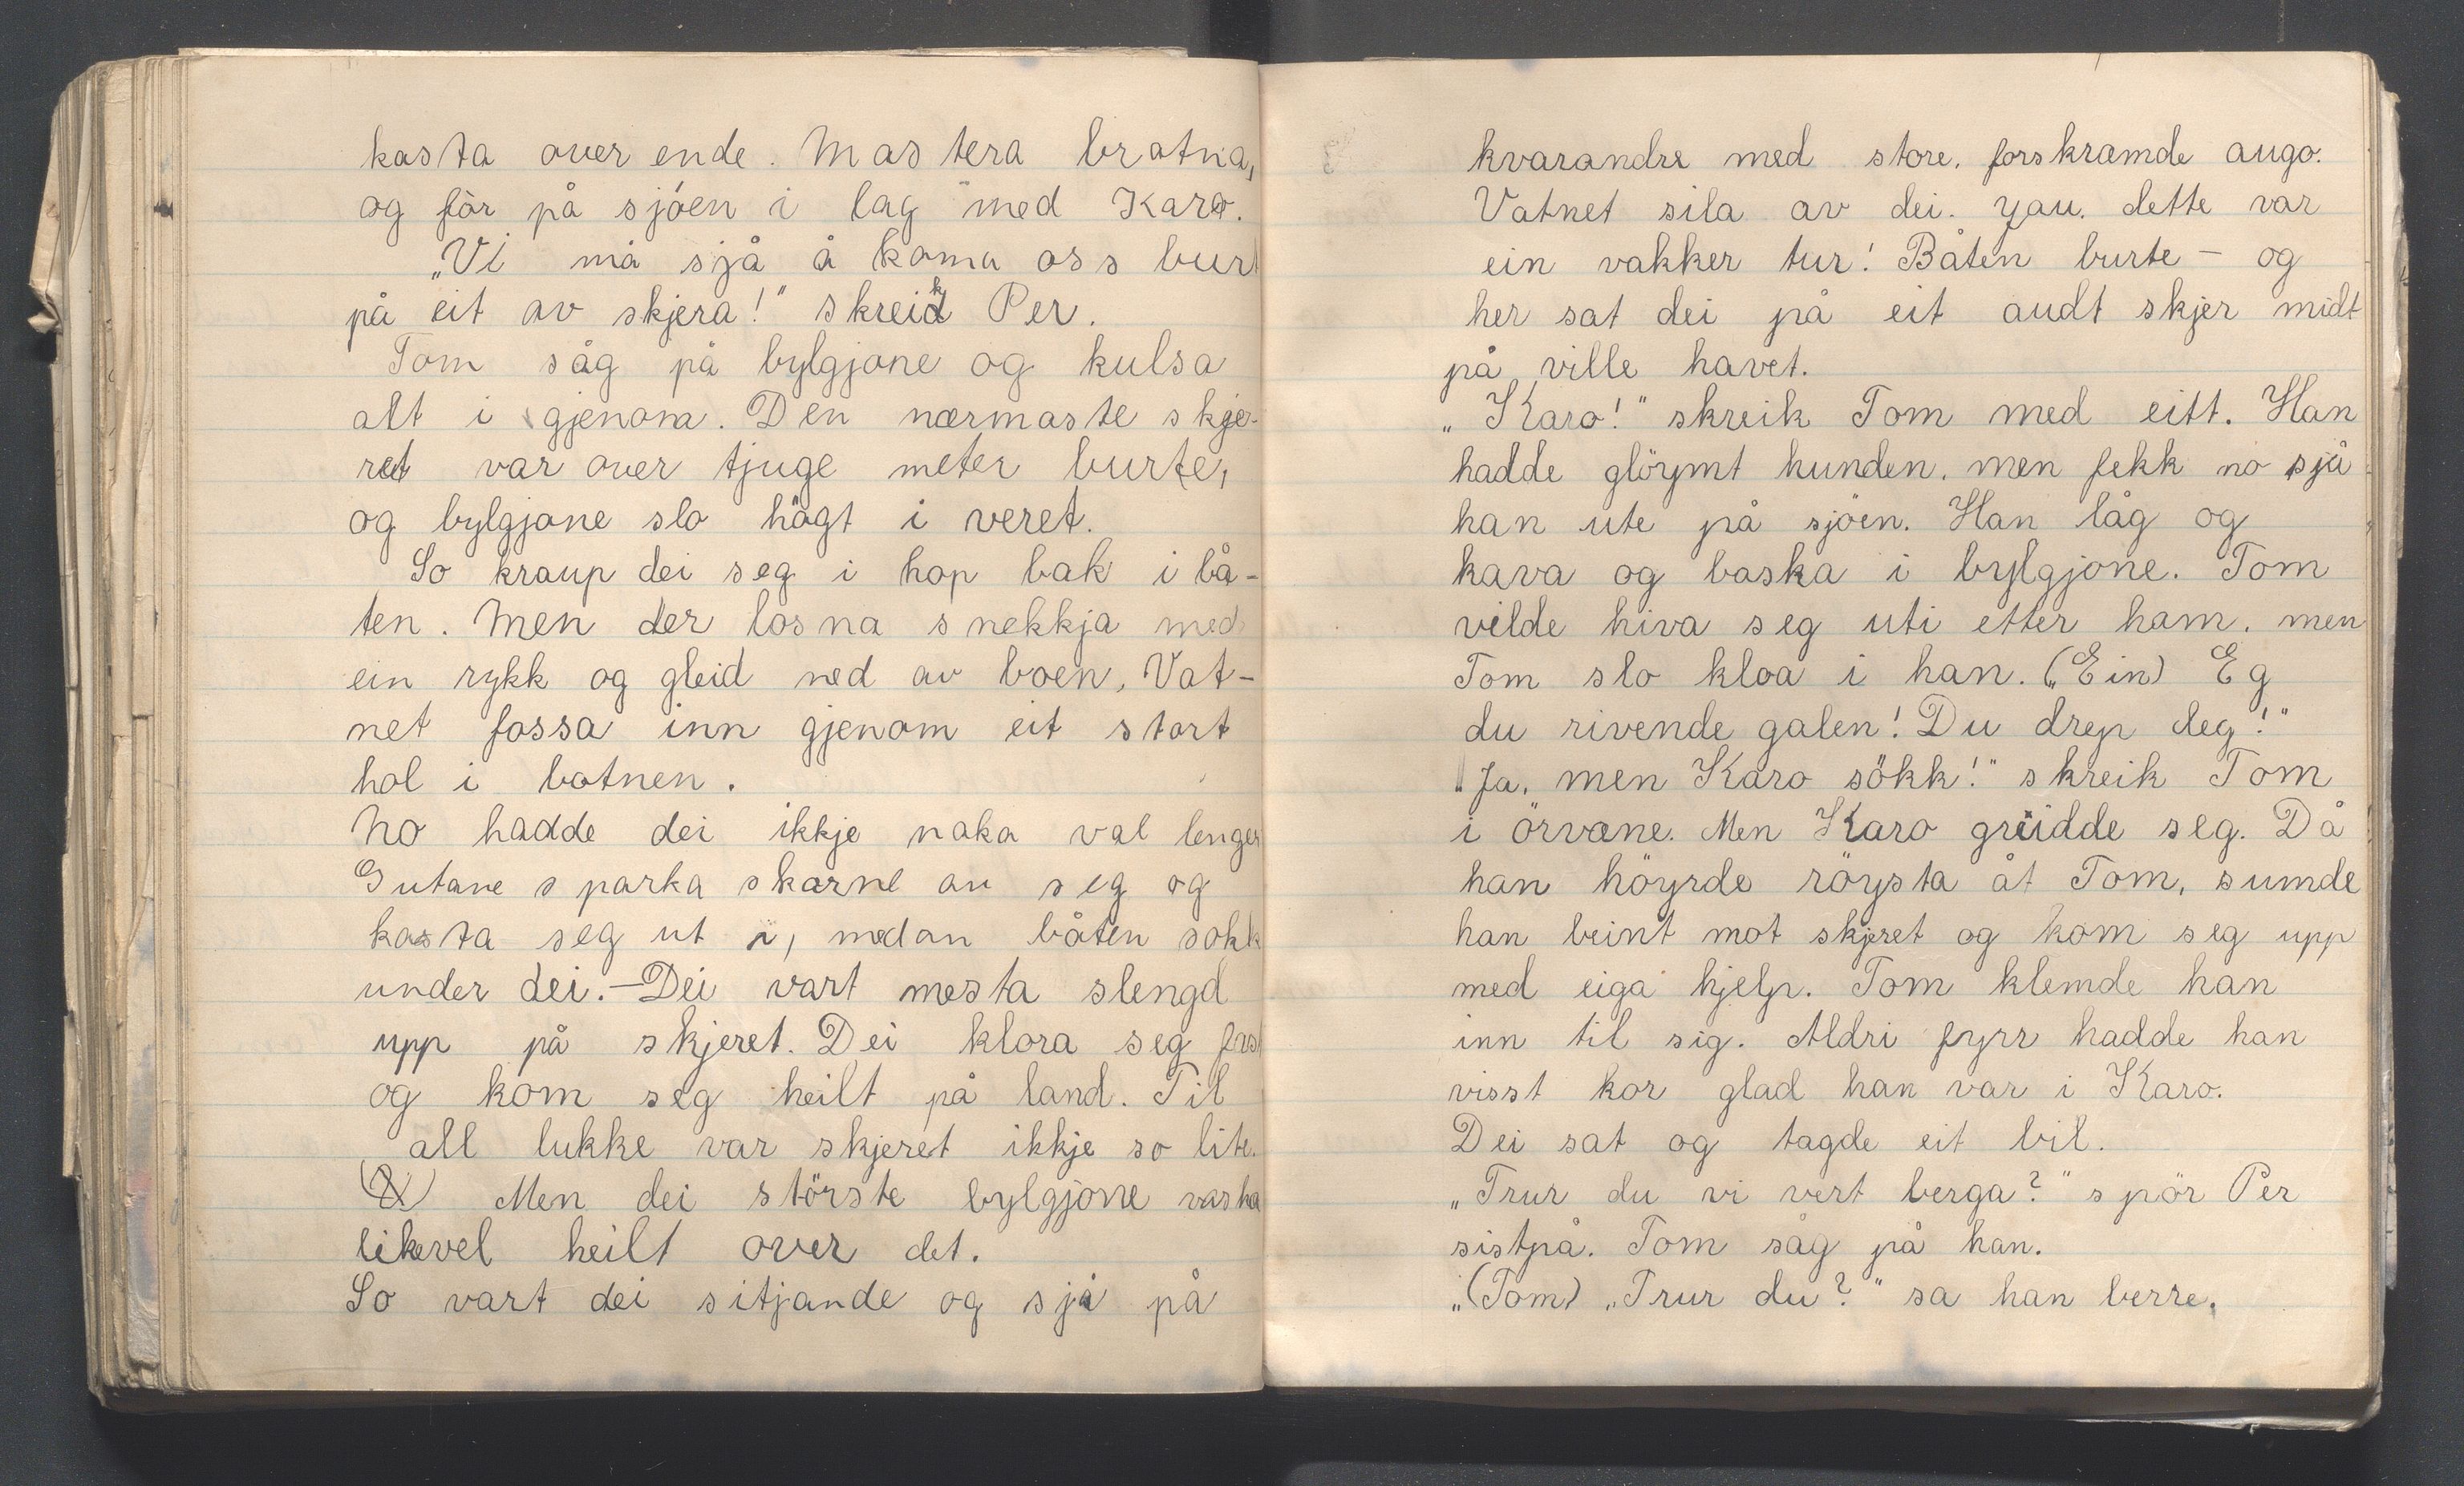 kasta over ende. Mastera bratna,
og för på sjöen i lag med Karo.
„Vi må sjå å koma oss burt
på eit av skjera!" skreik Per.
Tom såg på bylgjone og kulsa
alt i gjenom. Den nærmaste skje-
ret var over tjuge meter burte,
og bylgjone slo högt i veret.
So kraup dei seg i hop bak i bå-
ten. Men der losna snekkja med
ein rykk og gleid ned av boen, Vat-
net fossa inn gjenom eit stort
hol i botnen.
No hadde dei ikkje noka val lenger
Gutane sparka skorne av seg og
kasta seg ut i, medan båten sokk
under dei. – Dei vart mesta slengd
upp på skjeret. Dei klora seg fast
og kom seg heilt på land. Til
all lukke var skjeret ikkje so lite.
Men dei störste bylgjone vaska
likevel heilt over det.
So vart dei sitjande og sjå på
kvarandre med store, forskræmde augo.
Vatnet sila av dei. Jau, dette var
ein vakker tur! Båten burte – og
her sat dei på eit audt skjer midt
på ville havet.
„Karo!" skreik Tom med eitt. Han
hadde glöymt hunden, men fekk no sjå
han ute på sjöen. Han låg og
kava og baska i bylgjone. Tom
vilde hiva seg uti etter ham, men
Tom slo kloa i han. („Ein) Eg
du rivende galen! Du drep deg!"
„Ja, men Karo sökk!" skreik Tom
i örvæne. Men Karo greidde seg. Då
han höyrde röysta åt Tom, sumde
han beint mot skjeret og kom seg upp
med eiga hjelp. Tom klemde han
inn til sig. Aldri fyrr hadde han
visst kor glad han var i Karo.
Dei sat og tagde eit bil.
„Trur du vi vert berga?" spör Per
sistpå. Tom såg på han.
„(Tom) „Trur du?" sa han berre.